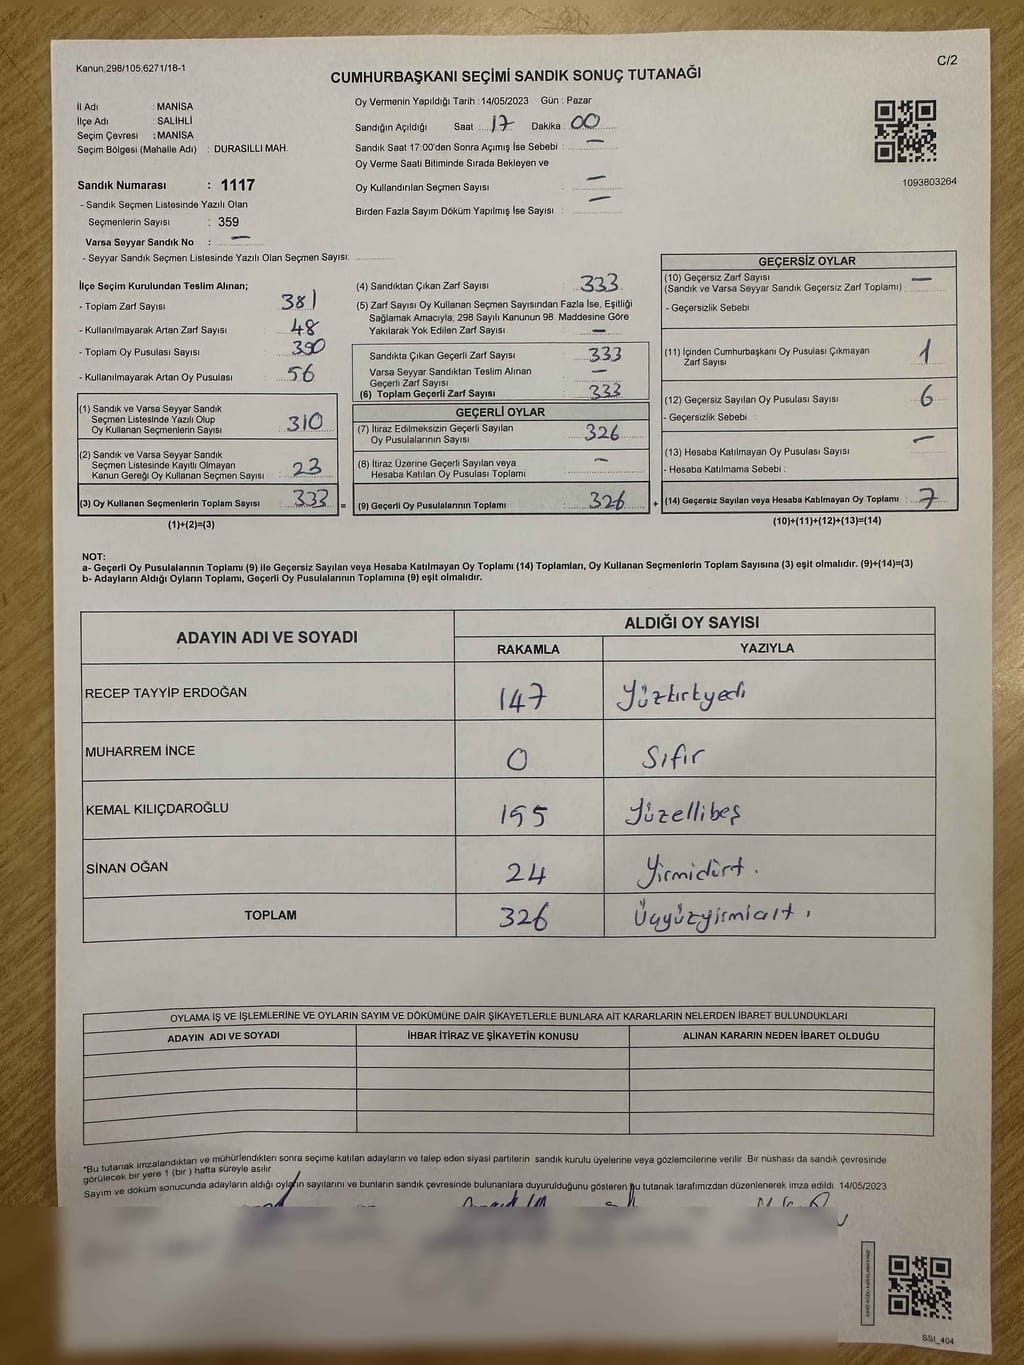 Kanun.298/105,6271/18-1
C/2
CUMHURBAŞKANI SEÇİMİ SANDIK SONUÇ TUTANAĞI
İl Adı : MANİSA
İlçe Adı : SALİHLİ
Seçim Çevresi : MANİSA
Seçim Bölgesi (Mahalle Adı) : DURASILLI MAH.
Sandık Numarası : 1117
- Sandık Seçmen Listesinde Yazılı Olan
Seçmenlerin Sayısı : 359
Varsa Seyyar Sandık No : —
- Seyyar Sandık Seçmen Listesinde Yazılı Olan Seçmen Sayısı:
Oy Vermenin Yapıldığı Tarih : 14/05/2023 Gün : Pazar
Sandığın Açıldığı Saat : 17 Dakika : 00
Sandık Saat 17:00'den Sonra Açımış İse Sebebi : —
Oy Verme Saati Bitiminde Sırada Bekleyen ve
Oy Kullandırılan Seçmen Sayısı —
Birden Fazla Sayım Döküm Yapılmış İse Sayısı : —
1093803264
İlçe Seçim Kurulundan Teslim Alınan;
- Toplam Zarf Sayısı : 381
- Kullanılmayarak Artan Zarf Sayısı : 48
- Toplam Oy Pusulası Sayısı : 390
- Kullanılmayarak Artan Oy Pusulası : 56
(1) Sandık ve Varsa Seyyar Sandık
Seçmen Listesinde Yazılı Olup
Oy Kullanan Seçmenlerin Sayısı : 310
(2) Sandık ve Varsa Seyyar Sandık
Seçmen Listesinde Kayıtlı Olmayan
Kanun Gereği Oy Kullanan Seçmen Sayısı : 23
(3) Oy Kullanan Seçmenlerin Toplam Sayısı : 333 =
(1)+(2)=(3)
(4) Sandıktan Çıkan Zarf Sayısı : 333
(5) Zarf Sayısı Oy Kullanan Seçmen Sayısından Fazla İse, Eşitliği
Sağlamak Amacıyla; 298 Sayılı Kanunun 98. Maddesine Göre
Yakılarak Yok Edilen Zarf Sayısı : —
Sandıkta Çıkan Geçerli Zarf Sayısı : 333
Varsa Seyyar Sandıktan Teslim Alınan
Geçerli Zarf Sayısı : —
(6) Toplam Geçerli Zarf Sayısı : 333
GEÇERLİ OYLAR
(7) İtiraz Edilmeksizin Geçerli Sayılan
Oy Pusulalarının Sayısı : 326
(8) İtiraz Üzerine Geçerli Sayılan veya
Hesaba Katılan Oy Pusulası Toplamı : —
(9) Geçerli Oy Pusulalarının Toplamı : 326 +
GEÇERSİZ OYLAR
(10) Geçersiz Zarf Sayısı
(Sandık ve Varsa Seyyar Sandık Geçersiz Zarf Toplamı) : —
- Geçersizlik Sebebi :
(11) İçinden Cumhurbaşkanı Oy Pusulası Çıkmayan
Zarf Sayısı : 1
(12) Geçersiz Sayılan Oy Pusulası Sayısı : 6
- Geçersizlik Sebebi :
(13) Hesaba Katılmayan Oy Pusulası Sayısı : —
- Hesaba Katılmama Sebebi :
(14) Geçersiz Sayılan veya Hesaba Katılmayan Oy Toplamı : 7
(10)+(11)+(12)+(13)=(14)
NOT:
a- Geçerli Oy Pusulalarının Toplamı (9) ile Geçersiz Sayılan veya Hesaba Katılmayan Oy Toplamı (14) Toplamları, Oy Kullanan Seçmenlerin Toplam Sayısına (3) eşit olmalıdır. (9)+(14)=(3)
b- Adayların Aldığı Oyların Toplamı, Geçerli Oy Pusulalarının Toplamına (9) eşit olmalıdır.
ADAYIN ADI VE SOYADI
ALDIĞI OY SAYISI
RAKAMLA YAZIYLA
RECEP TAYYİP ERDOĞAN 147 Yüzkırkyedi
MUHARREM İNCE 0 Sıfır
KEMAL KILIÇDAROĞLU 155 Yüzellibeş
SİNAN OĞAN 24 Yirmidört.
TOPLAM 326 Üçyüzyirmialtı
OYLAMA İŞ VE İŞLEMLERİNE VE OYLARIN SAYIM VE DÖKÜMÜNE DAİR ŞİKAYETLERLE BUNLARA AİT KARARLARIN NELERDEN İBARET BULUNDUKLARI
ADAYIN ADI VE SOYADI İHBAR İTİRAZ VE ŞİKAYETİN KONUSU ALINAN KARARIN NEDEN İBARET OLDUĞU
*Bu tutanak imzalandıktan ve mühürlendikten sonra seçime katılan adayların ve talep eden siyasi partilerin sandık kurulu üyelerine veya gözlemcilerine verilir. Bir nüshası da sandık çevresinde
görülecek bir yere 1 (bir ) hafta süreyle asılır.
Sayım ve döküm sonucunda adayların aldığı oyların sayılarını ve bunların sandık çevresinde bulunanlara duyurulduğunu gösteren bu tutanak tarafımızdan düzenlenerek imza edildi. 14/05/2023
SSI_404